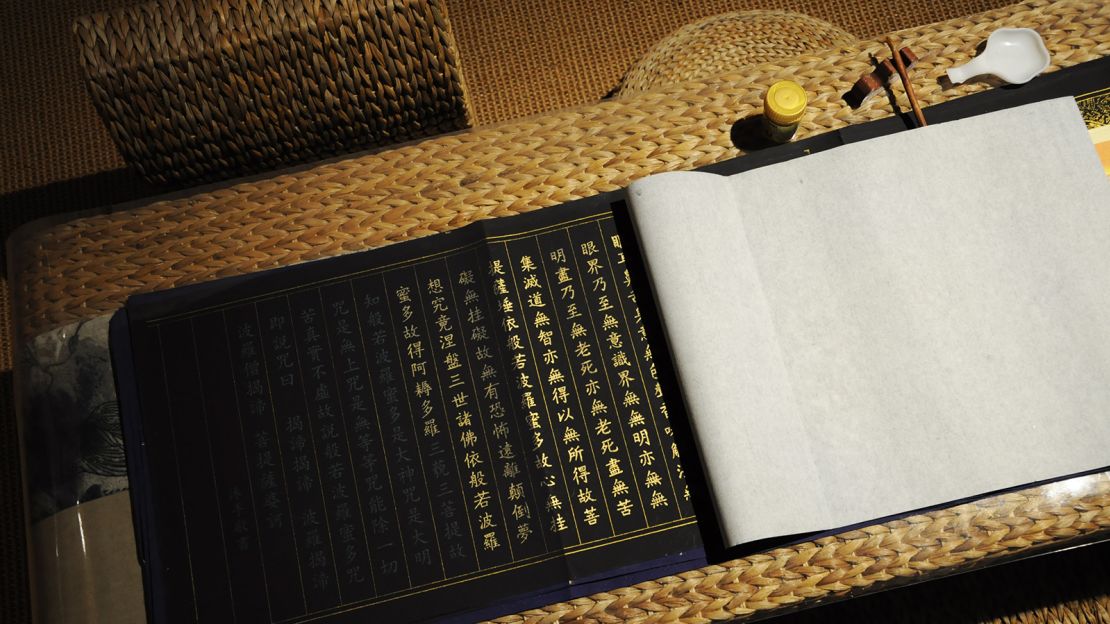 眼界乃至無意識界無無明亦無無
明盡乃至無老死亦無老死盡無苦
集滅道無智亦無得以無所得故菩
提薩埵依般若波羅蜜多故心無挂
礙無挂礙故無有恐怖遠離顛倒夢
想究竟涅盤三世諸佛依般若波羅
蜜多故得阿耨多羅三藐三菩提故
知般若波羅蜜多是大神咒是大明
咒是無上咒是無等等咒能除一切
苦真實不虛故說般若波羅蜜多咒
即說咒曰 揭諦揭諦 波羅揭諦
波羅僧揭諦 菩提薩婆訶